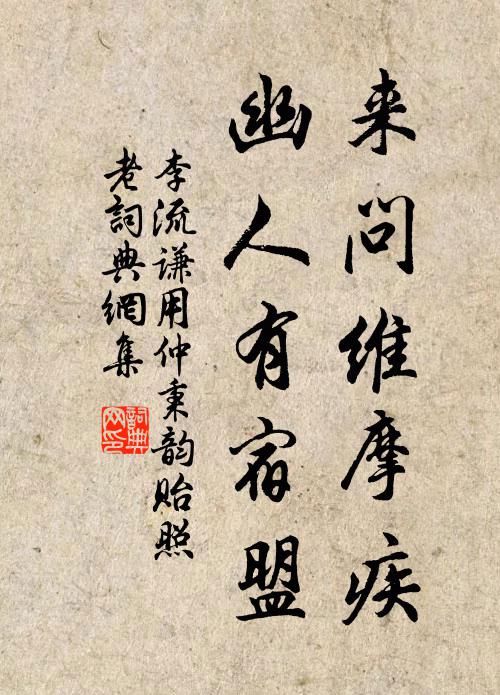 来问维摩疾
幽人有宿盟
李流谦用仲秉韵贻照
老詞典網集
詞典网印